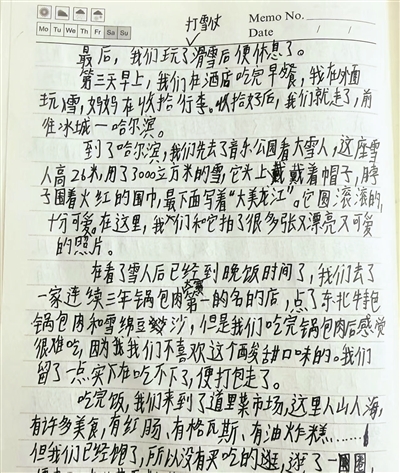 打雪仗
Memo No.
Mo Tu We Th Fr Sa Su
Date / /
最后，我们玩了滑雪后便休息了。
第三天早上，我们在酒店吃完早餐，我在外面
玩雪，妈妈在收拾行李。收拾好后，我们就走了，前
往冰城一哈尔滨。
到了哈尔滨，我们先去了音乐公园看大雪人，这座雪
人高26米，用了3000立方米的雪，它头上戴戴着帽子，脖
子围着火红的围巾，最下面写着“大美龙江”。它圆滚滚的，
十分可爱。在这里，我们和它拍了很多张又漂亮又可爱
的照片。
在看了雪人后已经到晚饭时间了，我们去了
一家连续三年锅包肉大赛第一的名的店，点了东北
锅包肉和雪绵豆沙，但是我们吃完锅包肉后感觉
很难吃，因为我我们不喜欢这个酸甜口味的。我们
留了一点实在吃不下了，便打包走了。
吃完饭，我们来到了道里菜市场，这里人山人海，
有许多美食，有红肠、有格瓦斯、有油炸糕……
但我们已经饱了，所以没有买吃的逛，逛了一圈